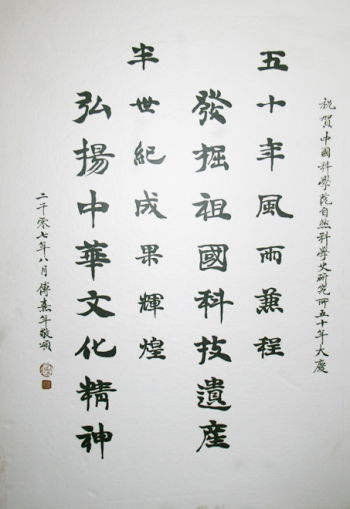 祝贺中國科學院自然科學史研究所五十年大慶
五十年風雨兼程
發掘祖國科技遺產
半世紀成果輝煌
弘揚中華文化精神
二千零七年八月傅熹年敬頌